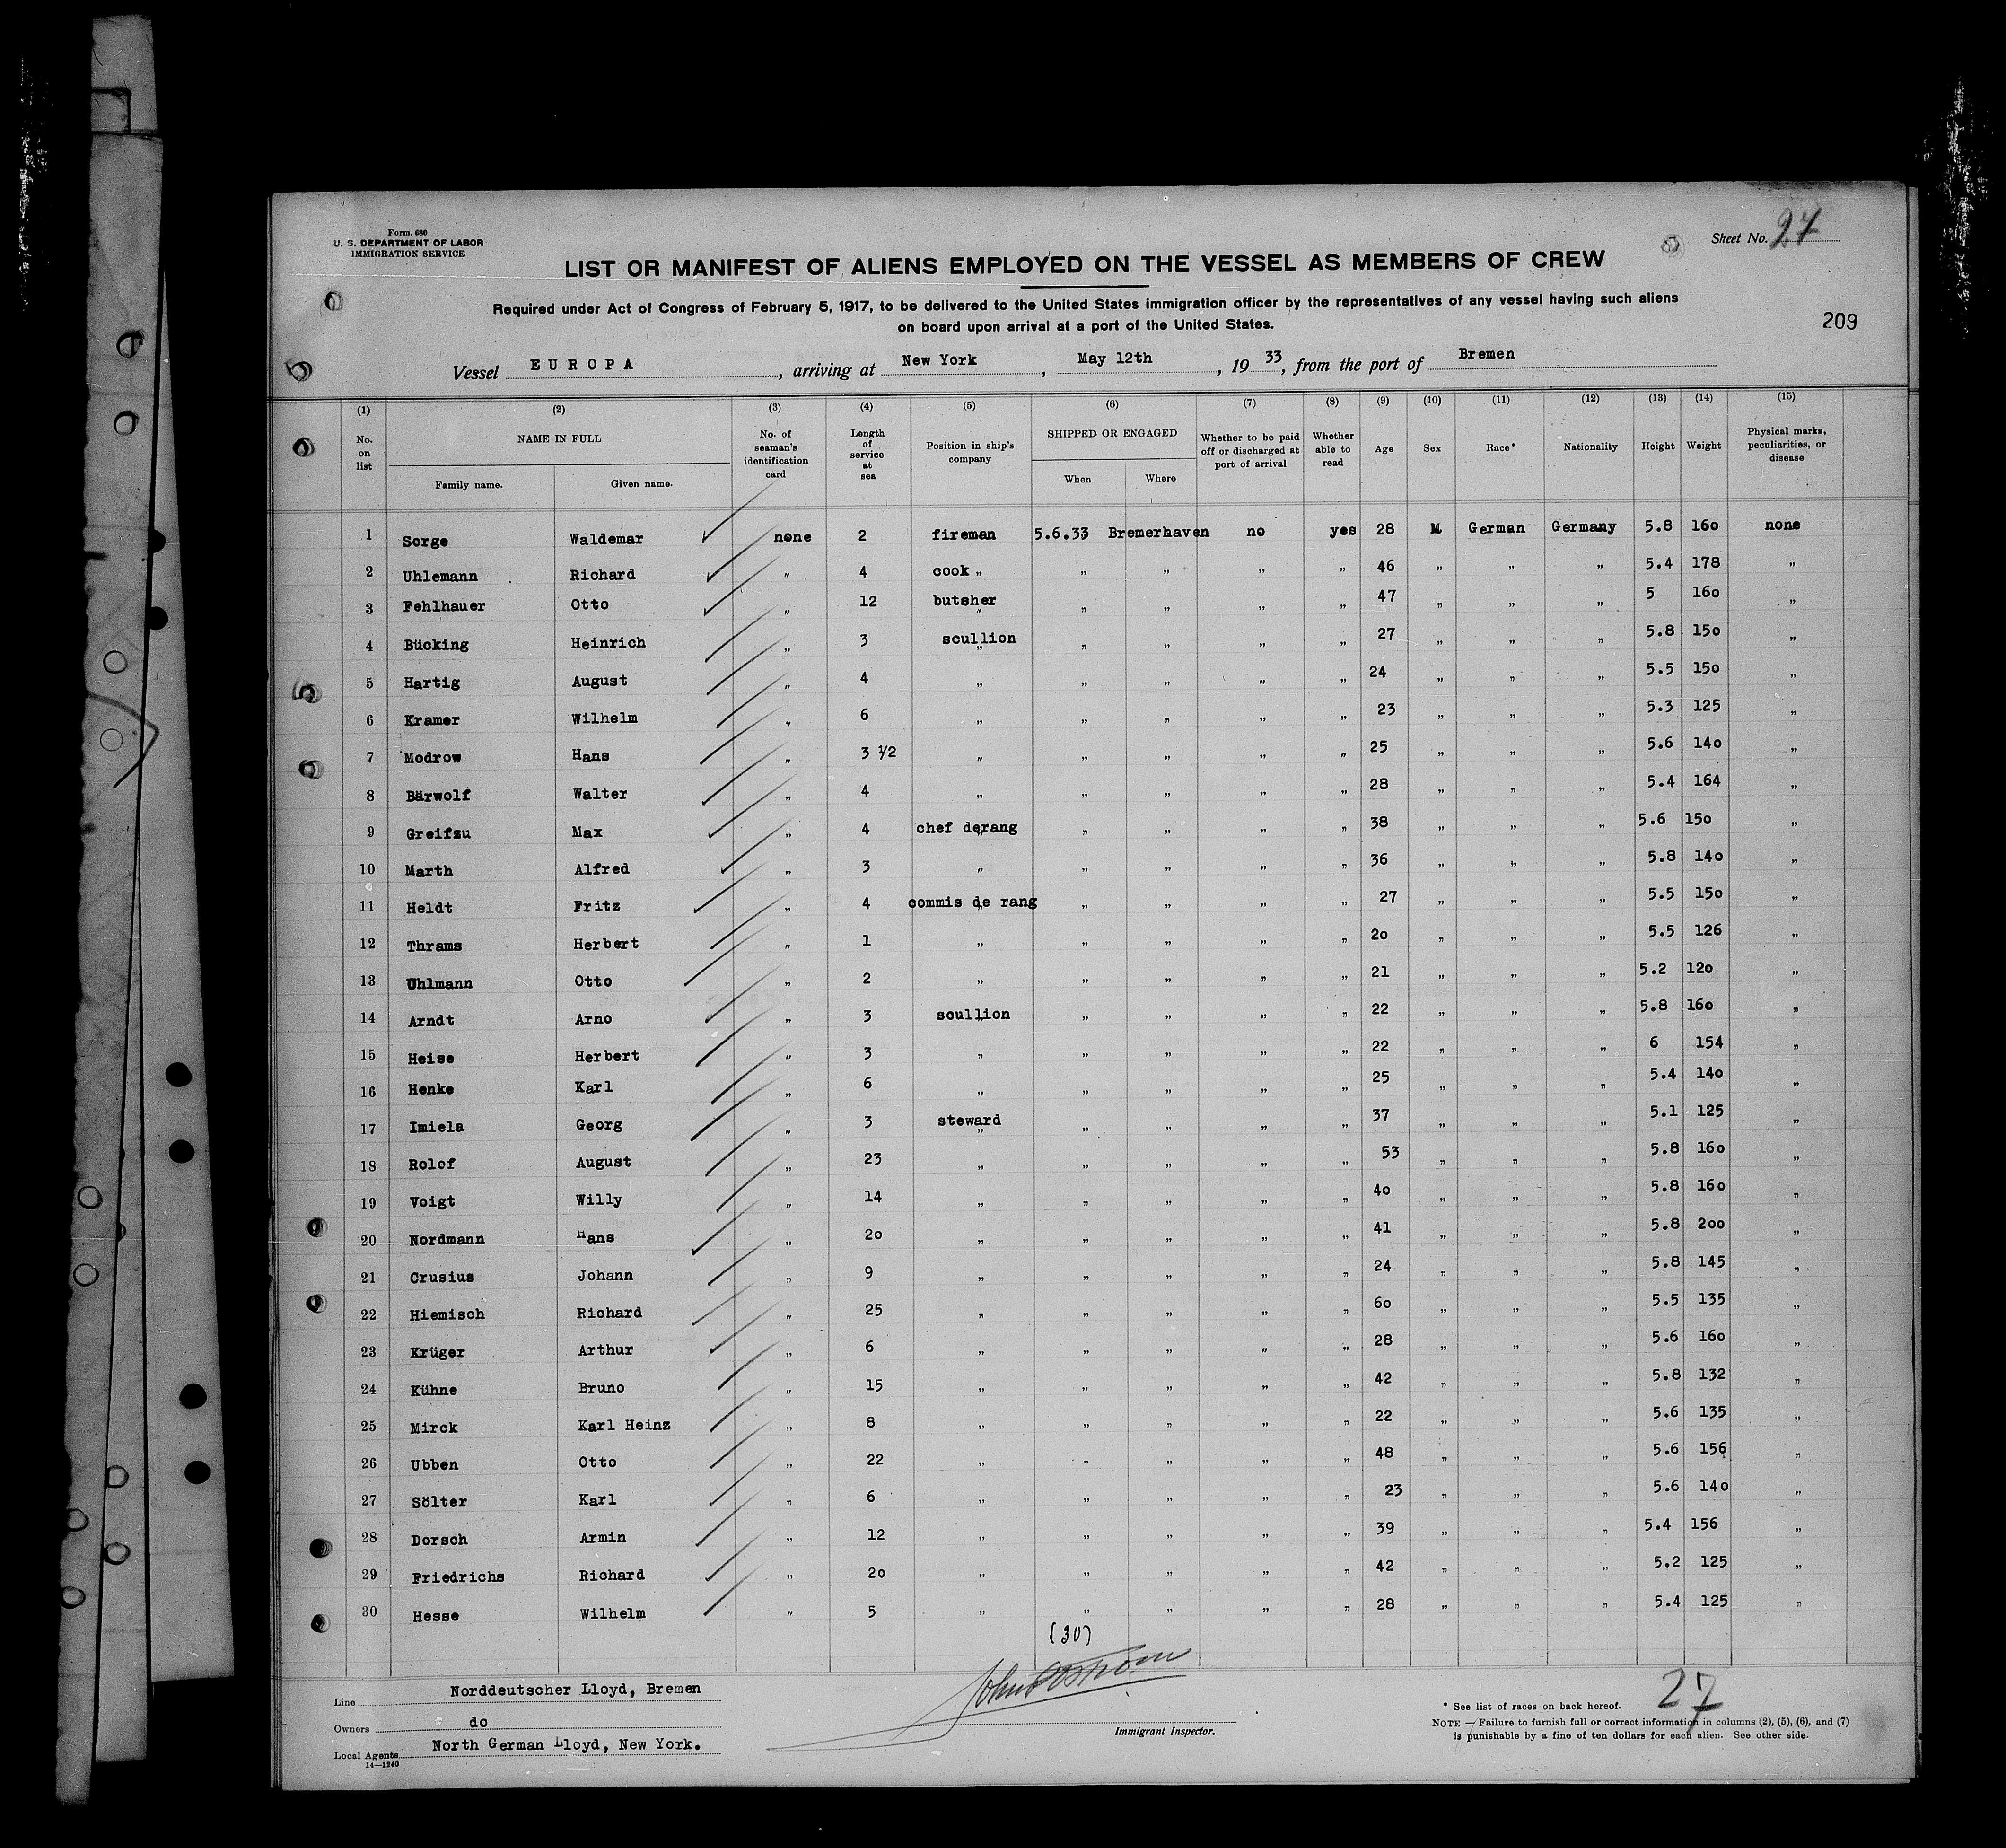 Form. 680
U. S. DEPARTMENT OF LABOR
IMMIGRATION SERVICE
Sheet No. 27
LIST OR MANIFEST OF ALIENS EMPLOYED ON THE VESSEL AS MEMBERS OF CREW
Required under Act of Congress of February 5, 1917, to be delivered to the United States immigration officer by the representatives of any vessel having such aliens
on board upon arrival at a port of the United States.
209
Vessel EUROPA, arriving at New York, May 12th, 19 33, from the port of Bremen
(1) (2) (3) (4) (5) (6) (7) (8) (9) (10) (11) (12) (13) (14) (15)
No. on list NAME IN FULL Family name. Given name. No. of seaman's identification card Length of service at sea Position in ship's company SHIPPED OR ENGAGED When Where Whether to be paid off or discharged at port of arrival Whether able to read Age Sex Race* Nationality Height Weight Physical marks, peculiarities, or disease
1 Sorge Waldemar none 2 fireman 5.6.33 Bremerhaven no yes 28 M German Germany 5.8 160 none
2 Uhlemann Richard „ 4 cook „ „ „ „ „ 46 „ „ „ 5.4 178 „
3 Fehlhauer Otto „ 12 butsher „ „ „ „ „ 47 „ „ „ 5 160 „
4 Bücking Heinrich „ 3 scullion „ „ „ „ „ 27 „ „ „ 5.8 150 „
5 Hartig August „ 4 „ „ „ „ „ 24 „ „ „ 5.5 150 „
6 Kramer Wilhelm „ 6 „ „ „ „ „ 23 „ „ „ 5.3 125 „
7 Modrow Hans „ 3 1/2 „ „ „ „ „ 25 „ „ „ 5.6 140 „
8 Bärwolf Walter „ 4 „ „ „ „ „ 28 „ „ „ 5.4 164 „
9 Greifzu Max „ 4 chef derang „ „ „ „ „ 38 „ „ „ 5.6 150 „
10 Marth Alfred „ 3 „ „ „ „ „ 36 „ „ „ 5.8 140 „
11 Heldt Fritz „ 4 commis de rang „ „ „ „ „ 27 „ „ „ 5.5 150 „
12 Thrams Herbert „ 1 „ „ „ „ „ 20 „ „ „ 5.5 126 „
13 Uhlmann Otto „ 2 „ „ „ „ „ 21 „ „ „ 5.2 120 „
14 Arndt Arno „ 3 scullion „ „ „ „ „ 22 „ „ „ 5.8 160 „
15 Heise Herbert „ 3 „ „ „ „ „ 22 „ „ „ 6 154 „
16 Henke Karl „ 6 „ „ „ „ „ 25 „ „ „ 5.4 140 „
17 Imiela Georg „ 3 steward „ „ „ „ „ 37 „ „ „ 5.1 125 „
18 Rolof August „ 23 „ „ „ „ „ 53 „ „ „ 5.8 160 „
19 Voigt Willy „ 14 „ „ „ „ „ 40 „ „ „ 5.8 160 „
20 Nordmann Hans „ 20 „ „ „ „ „ 41 „ „ „ 5.8 200 „
21 Crusius Johann „ 9 „ „ „ „ „ 24 „ „ „ 5.8 145 „
22 Hiemisch Richard „ 25 „ „ „ „ „ 60 „ „ „ 5.5 135 „
23 Krüger Arthur „ 6 „ „ „ „ „ 28 „ „ „ 5.6 160 „
24 Kühne Bruno „ 15 „ „ „ „ „ 42 „ „ „ 5.8 132 „
25 Mirck Karl Heinz „ 8 „ „ „ „ „ 22 „ „ „ 5.6 135 „
26 Ubben Otto „ 22 „ „ „ „ „ 48 „ „ „ 5.6 156 „
27 Sölter Karl „ 6 „ „ „ „ „ 23 „ „ „ 5.6 140 „
28 Dorsch Armin „ 12 „ „ „ „ „ 39 „ „ „ 5.4 156 „
29 Friedrichs Richard „ 20 „ „ „ „ „ 42 „ „ „ 5.2 125 „
30 Hesse Wilhelm „ 5 „ „ „ „ „ 28 „ „ „ 5.4 125 „
(30)
Line Norddeutscher Lloyd, Bremen
Owners do
Local Agents North German Lloyd, New York.
14—1240
Immigrant Inspector.
27
* See list of races on back hereof.
NOTE — Failure to furnish full or correct information in columns (2), (5), (6), and (7)
is punishable by a fine of ten dollars for each alien. See other side.